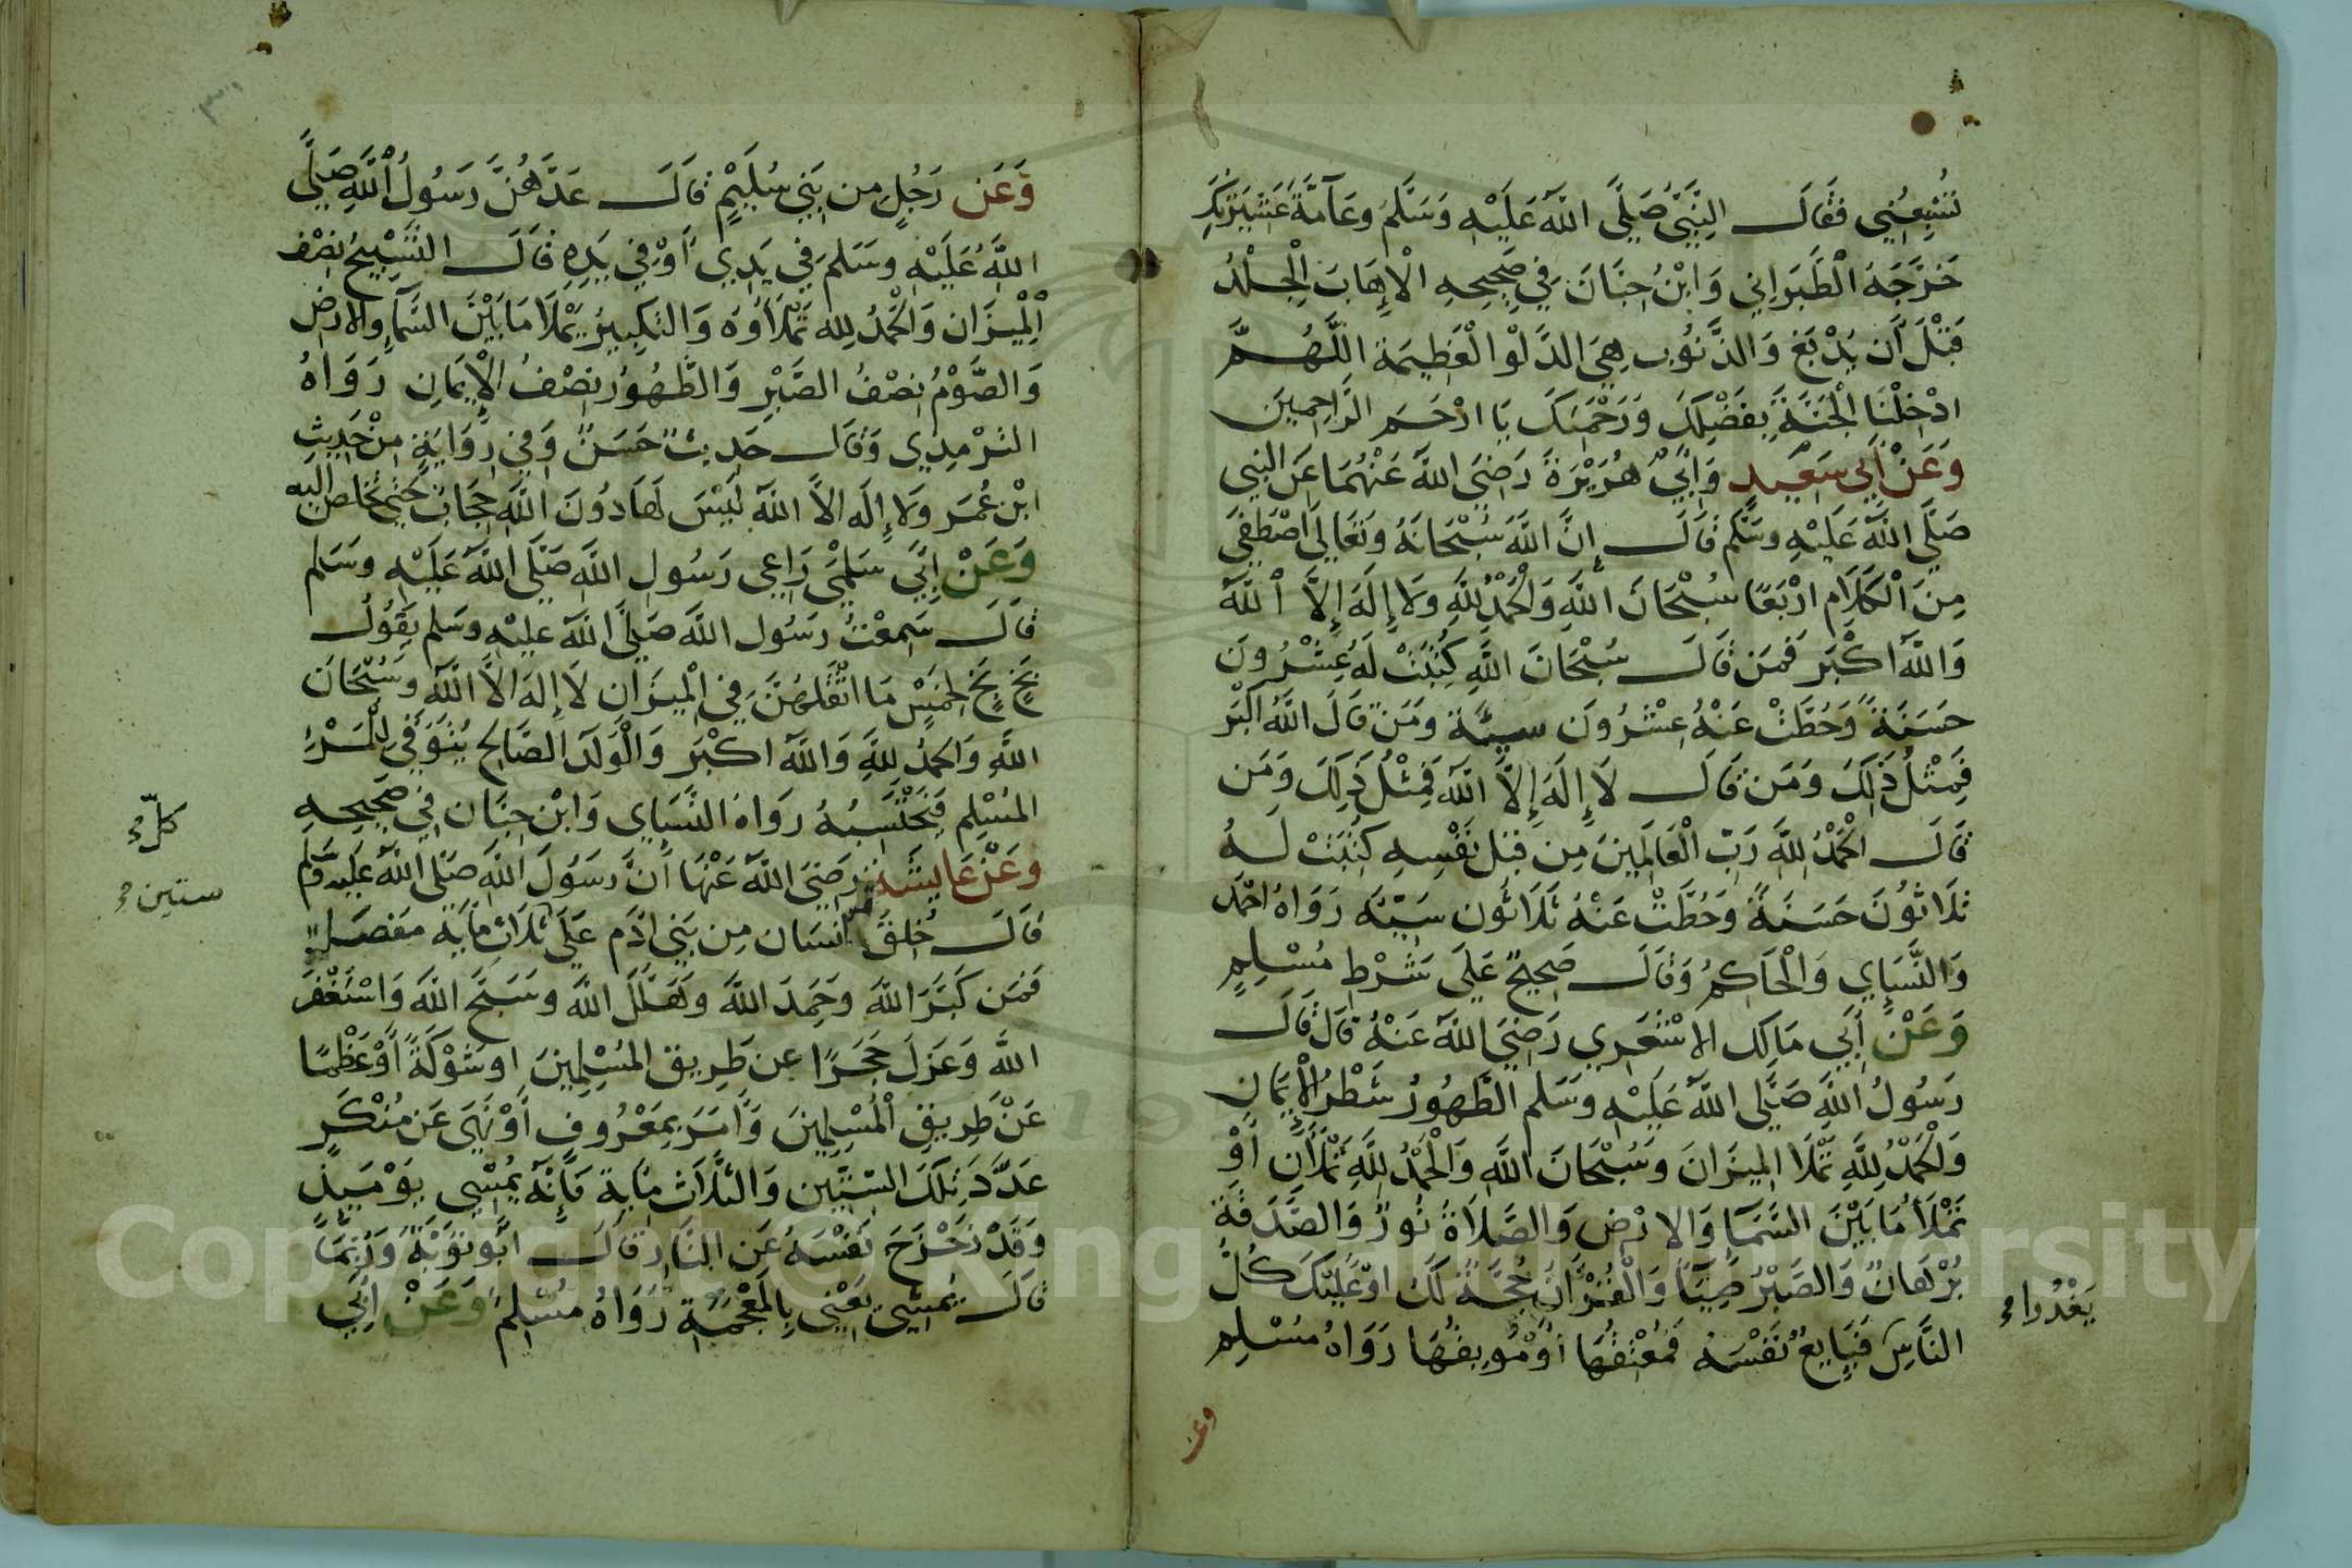 تُشْبِعُنِي فَقَالَ النَّبِيُّ صَلَّى اللَّهُ عَلَيْهِ وَسَلَّمَ وَعَامَّةُ عَشِيرَتِكَ
خَرَّجَهُ الطَّبَرَانِي وَابْنُ حِبَّانَ فِي صَحِيحِهِ الْإِهَابَ الْجِلْدُ
قَبْلَ أَن يُدْبَغَ وَالذَّنُوب هِيَ الدَّلْوُ الْعَظِيمَة اللَّهُمَّ
ادْخِلْنَا الْجَنَّةَ بِفَضْلِكَ وَرَحْمَتِكَ يَا ارْحَمَ الرَّاحِمِينَ
وَعَنْ أَبِي سَعِيدٍ وَابِي هُرَيْرَةَ رَضِيَ اللَّهُ عَنْهُمَا عَنِ النبي
صَلَّى اللَّهُ عَلَيْهِ وسَلَّم قَالَ إِنَّ اللَّهَ سُبْحَانَهُ وَتَعَالَى اصْطَفَى
مِنَ الْكَلَامِ ارْبَعًا سُبْحَانَ اللَّهِ وَالْحَمْدُ لِلَّهِ وَلَا إِلَهَ إِلَّا اللَّهُ
وَاللَّهُ اكْبَر فَمَن قَالَ سُبْحَانَ اللَّهِ كُتِبَتْ لَهُ عِشْرُونَ
حَسَنَةً وَحُطَّتْ عَنْهُ عِشْرُونَ سيئة وَمَن قَالَ اللَّهُ اكْبَر
فَمِثْلُ ذَلِكَ وَمَن قَالَ لَا إِلَهَ إِلَّا اللَّهُ فَمِثْلُ ذَلِكَ وَمَن
قَالَ الْحَمْدُ لِلَّهِ رَبِّ الْعَالَمِينَ مِن قِبَلِ نَفْسِهِ كُتِبَتْ لَهُ
ثَلَاثُونَ حَسَنَةً وَحُطَّتْ عَنْهُ ثَلَاثُون سَيِّئَة رَوَاهُ احْمَد
وَالنَّسَايِ وَالْحَاكِمُ وَقَالَ صَحِيحٌ عَلَى شَرْطِ مُسْلِمٍ
وَعَنْ أَبِي مَالِك الاشْعَرِي رَضِيَ اللَّهُ عَنْهُ قَالَ قَالَ
رَسُولُ اللَّهِ صَلَّى اللَّهُ عَلَيْهِ وسَلم الطَّهُورُ شَطْرُ الْإِيمَانِ
وَالْحَمْدُ لِلَّهِ تَمْلَأُ الْمِيزَانَ وسُبْحَانَ اللَّهِ وَالْحَمْدُ لِلَّهِ تَمْلَآنِ أَوْ
تَمْلَأُ مَا بَيْنَ السَّمَا وَالارْضِ وَالصَّلَاةُ نُورٌ وَالصَّدَقَةُ
بُرْهَانٌ وَالصَبْرُ ضِيَاءٌ وَالْقُرْآنُ حُجَّةٌ لَكَ اوْ عَلَيْكَ كُلُّ
يَغْدُوا
النَّاسِ فَبَايِعٌ نَفْسَه فَمُعْتِقُهَا أَوْ مُوبِقُهَا رَوَاهُ مُسْلِم
وعن
وَعَن رَجُلٍ مِن بَنِي سُلَيْمٍ قَالَ عَدَّهُنَّ رَسُولُ اللَّهِ صَلَّى
اللَّهُ عَلَيْهِ وسَلم فِي يَدِي أَوْ فِي يَدِهِ قَالَ التَّسْبِيحُ نِصْفُ
الْمِيزَانِ وَالْحَمْدُ لِلَّهِ تَمْلَأُوهُ وَالتكبِيرُ يَمْلَأُ مَا بَيْنَ السَّمَاءِ وَالارْضِ
وَالصَّوْمُ نِصْفُ الصَّبْرِ وَالطَّهُورُ نِصْفُ الْإِيمَانِ رَوَاهُ
التِرْمِذِي وَقَالَ حَدِيثٌ حَسَنٌ وَفِي رِوَايَةٍ مِنْ حَدِيثِ
ابْنِ عُمَر وَلَا إِلَه الاَّ اللَّهُ لَيْسَ لَهَا دُونَ اللَّهِ حِجَابٌ حَتَّى تَخْلُصَ إليه
وَعَنْ أَبِي سَلْمَى رَاعِي رَسُولِ اللَّهِ صَلَّى اللَّهُ عَلَيْهِ وسَلم
قَالَ سَمِعْتُ رَسُول اللَّهِ صَلَّى اللَّهُ عليْهِ وسَلم يَقُولُ
بَخٍ بَخٍ لِخَمْسٍ مَا اثْقَلَهُنَّ فِي الْمِيزَانِ لَا إِلهَ الاَّ اللَّهُ وسُبْحَانَ
اللَّهِ وَالحَمْدُ لِلَّهِ وَاللَّهُ اكْبَر وَالْوَلَدُ الصَّالِحُ يُتَوَفَّى لِلْمَرْءِ
المُسْلِمِ فَيَحْتَسِبُهُ رَوَاهُ النَّسَايِ وَابْن حِبَّان فِي صَحِيحِهِ
وَعَنْ عَايِشَةَ رَضِيَ اللَّهُ عَنْهَا أَنَّ رَسُولَ اللَّهِ صَلَّى اللَّهُ عَلَيْهِ وَسَلَّم
كلّ
قَالَ خُلِقَ انْسَان مِن بَنِي آدَم عَلَى ثَلَاثِ مَايَة مَفْصَل
ستين
فَمَن كَبَّرَ اللَّهَ وَحَمِدَ اللَّهَ وَهَلَّلَ اللَّهَ وسَبَّحَ اللَّهَ وَاسْتَغْفَرَ
اللَّهَ وَعَزَلَ حَجَرًا عن طَرِيق المُسْلِمِينَ اوشَوْكَةً أَوْ عَظْمًا
عَنْ طَرِيقِ الْمُسْلِمِينَ وَأَمَرَ بِمَعْرُوفٍ أَوْ نَهَى عَن مُنْكَرٍ
عَدَدَ تِلْكَ السِّتِّينِ وَالثَّلَاثِ مِايَة فَإِنَّهُ يُمْسِي يَوْمَيِذٍ
وَقَدْ زَحْزَحَ نَفْسَهُ عَنِ النَّارِ قَالَ ابُو تَوْبَةَ وَرُبَّمَا
قَالَ يُمْشِي يَعْنِي بِالْمُعْجَمَةِ رَوَاهُ مُسْلِمٌ وَعَنْ أَبِي
Copyright © King Saud University